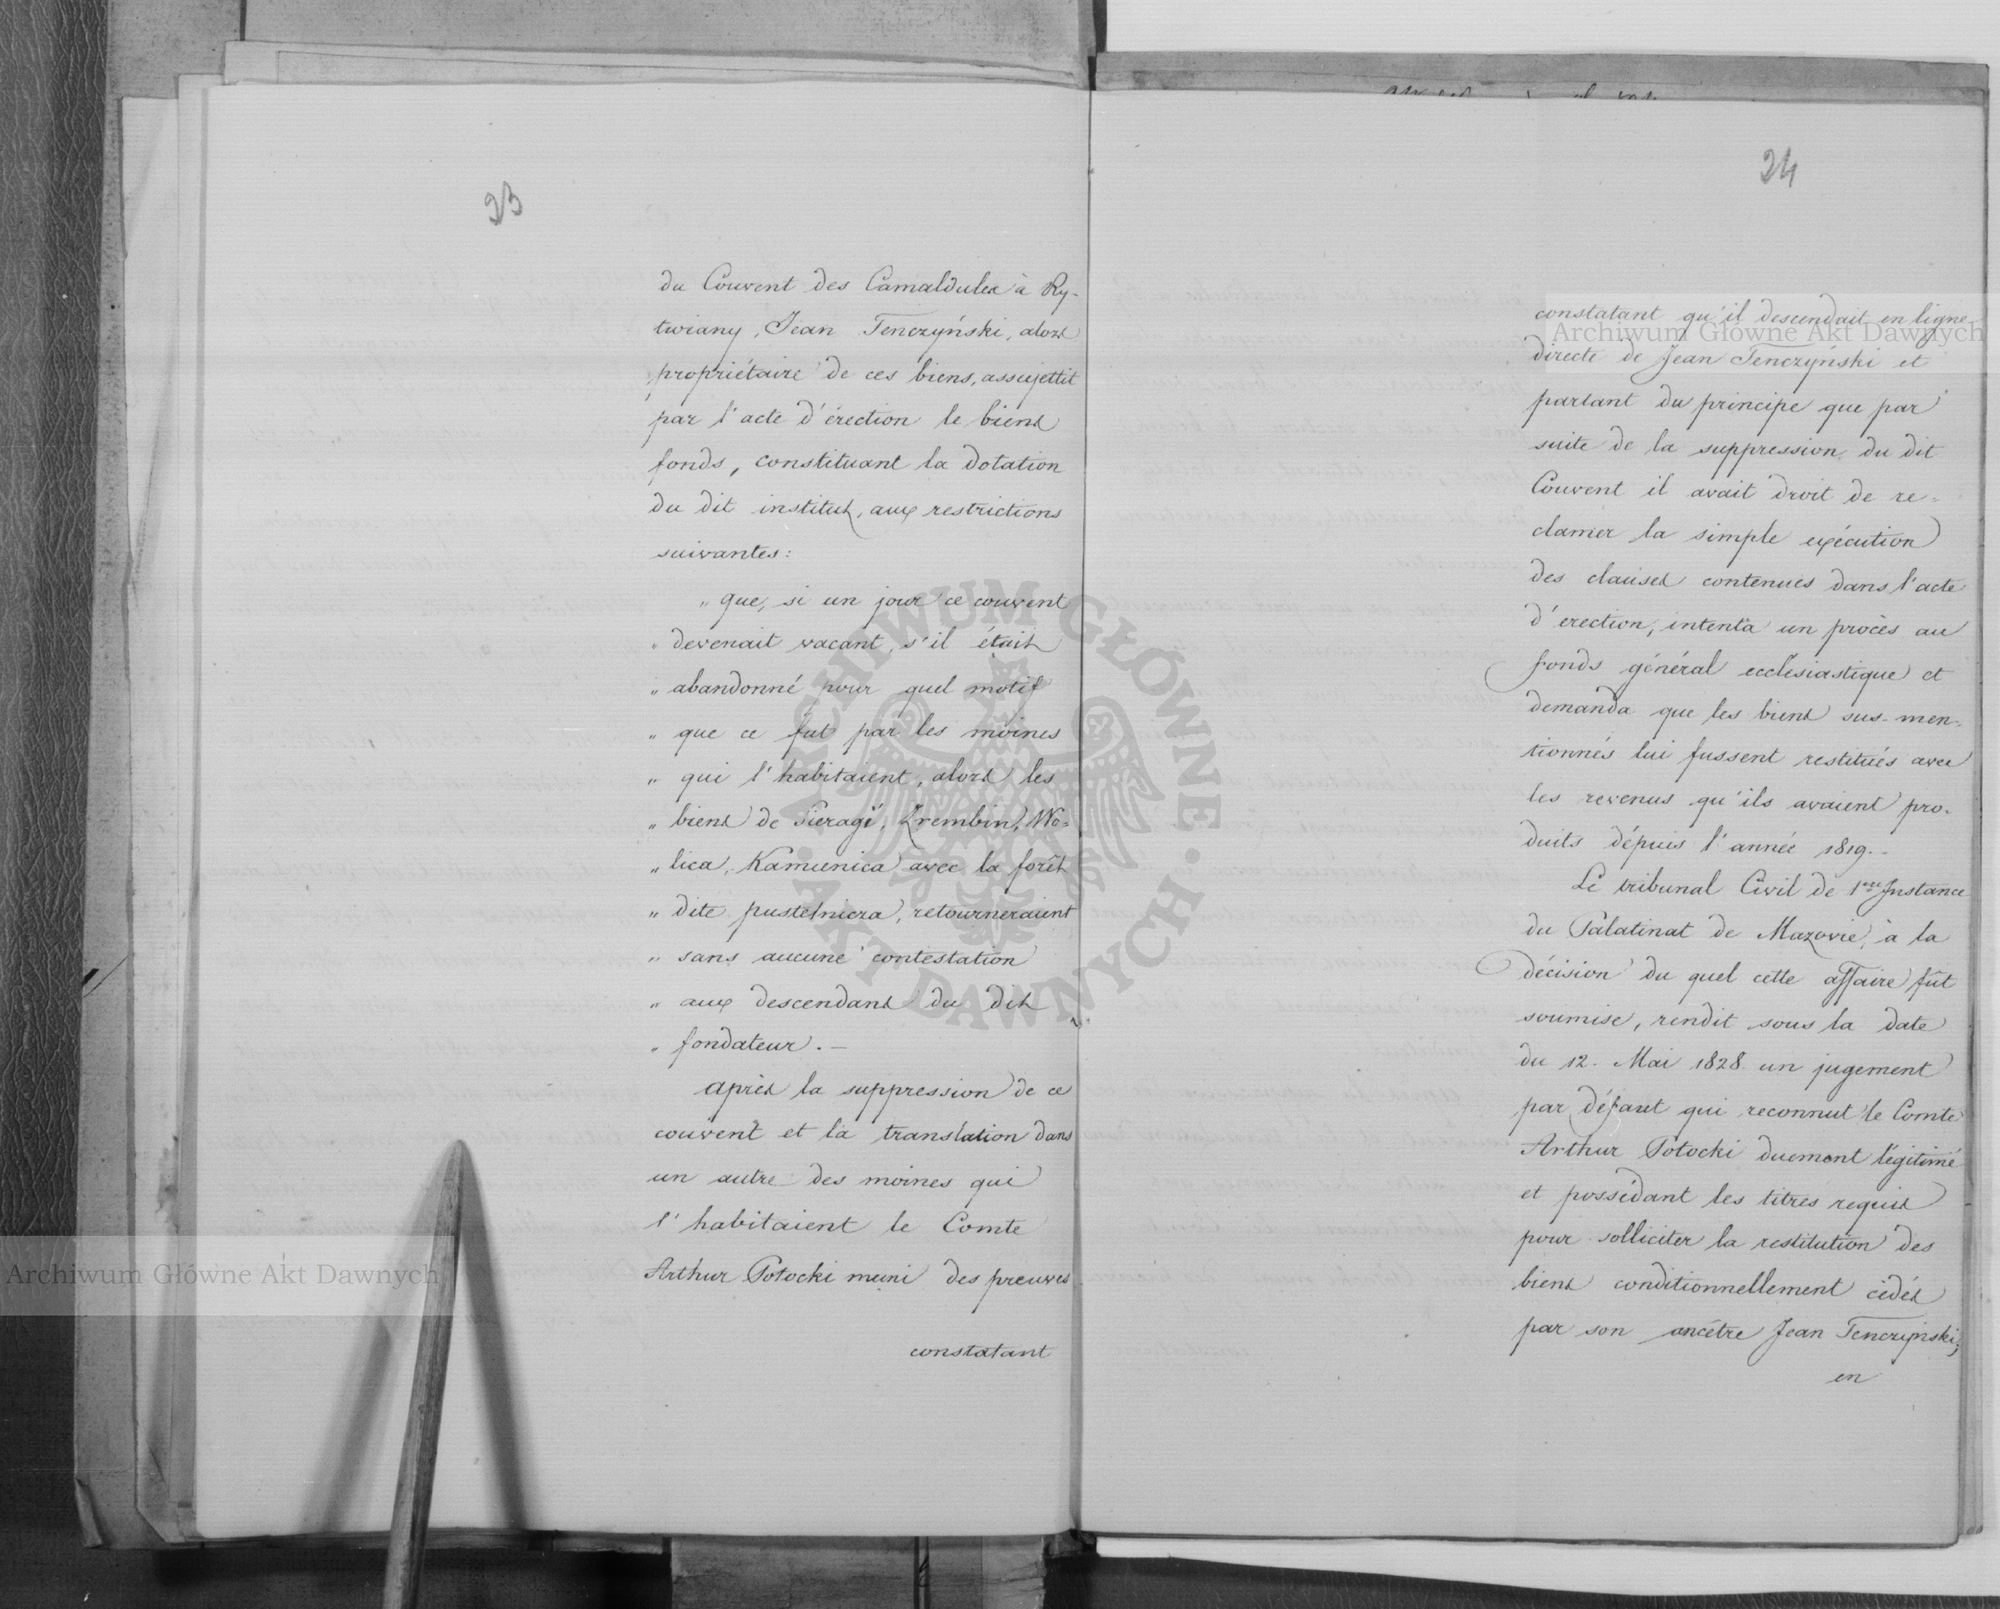 23
du Couvent des Camaldules à Ry-
twiany, Jean Tenczyński, alors
propriétaire de ces biens, assujettit
par l'acte d'érection le biens
fonds, constituant la dotation
du dit institut, aux restrictions
suivantes:
„ que, si un jour ce couvent
„ devenait vacant, s'il était
„ abandonné pour quel motif
„ que ce fut par les moines
„ qui l'habitaient, alors les
„ biens de Sieragi, Zrembin, Wo-
„ lica, Kamienica avec la forêt
„ dite pustelnicza, retourneraient
„ sans aucune contestation
„ aux descendans du dit
„ fondateur. —
après la suppression de ce
couvent et la translation dans
un autre des moines qui
l'habitaient le Comte
Arthur Potocki muni des preuves
constatant
24
constatant qu'il descendait en ligne
directe de Jean Tenczyński et
partant du principe que par
suite de la suppression du dit
Couvent il avait droit de re-
clamer la simple exécution
des clauses contenues dans l'acte
d'érection, intenta un procès au
fonds général ecclésiastique et
demanda que les biens sus-men-
tionnés lui fussent restitués avec
les revenus qu'ils avaient pro-
duits dépuis l'année 1819.-
Le tribunal Civil de 1ère Instance
du Palatinat de Mazovie, à la
décision du quel cette affaire fût
soumise, rendit sous la date
du 12. Mai 1828 un jugement
par défaut qui reconnut le Comte
Arthur Potocki duement légitimé
et possédant les titres requis
pour solliciter la restitution des
biens conditionnellement cédés
par son ancêtre Jean Tenczyński;
en
Archiwum Główne Akt Dawnych
Archiwum Główne Akt Dawnych
ARCHIWUM GŁÓWNE · AKT DAWNYCH ·